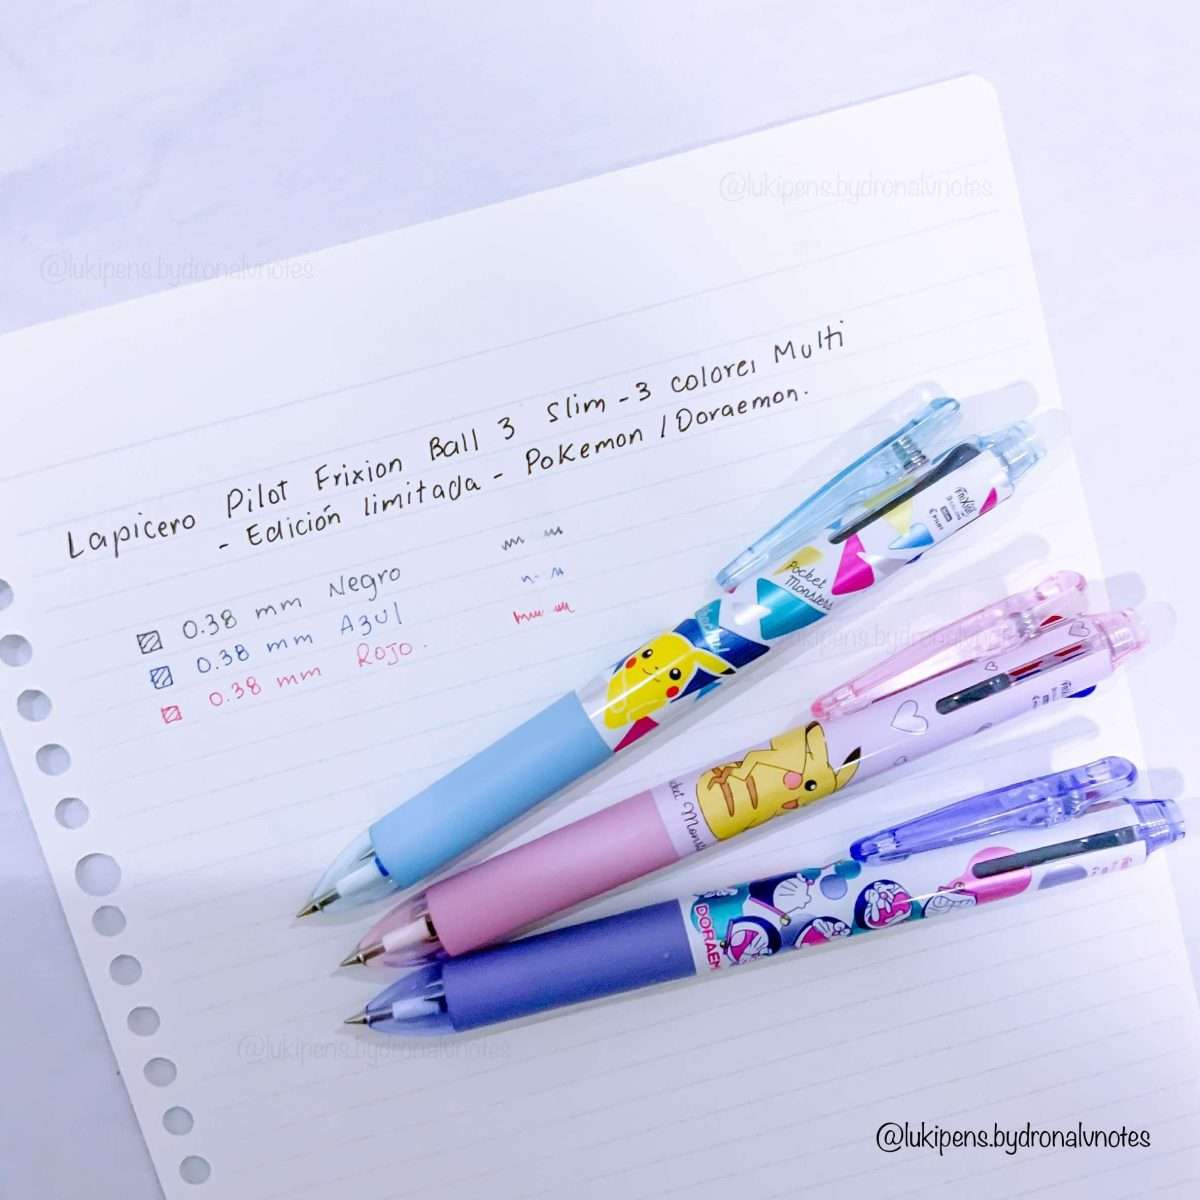 @lukipens.bydronalvnotes
@lukipens.bydronalvnotes
Lapicero Pilot Frixion Ball 3 Slim - 3 colores Multi
- Edición limitada - Pokemon / Doraemon.
0.38 mm Negro
0.38 mm Azul
0.38 mm Rojo.
FRIXION
PILOT
Pocket
Monsters
Pikachu
Pocket Monst
DORAEM
@lukipens.bydronalvnotes
@lukipens.bydronalvnotes
@lukipens.bydronalvnotes